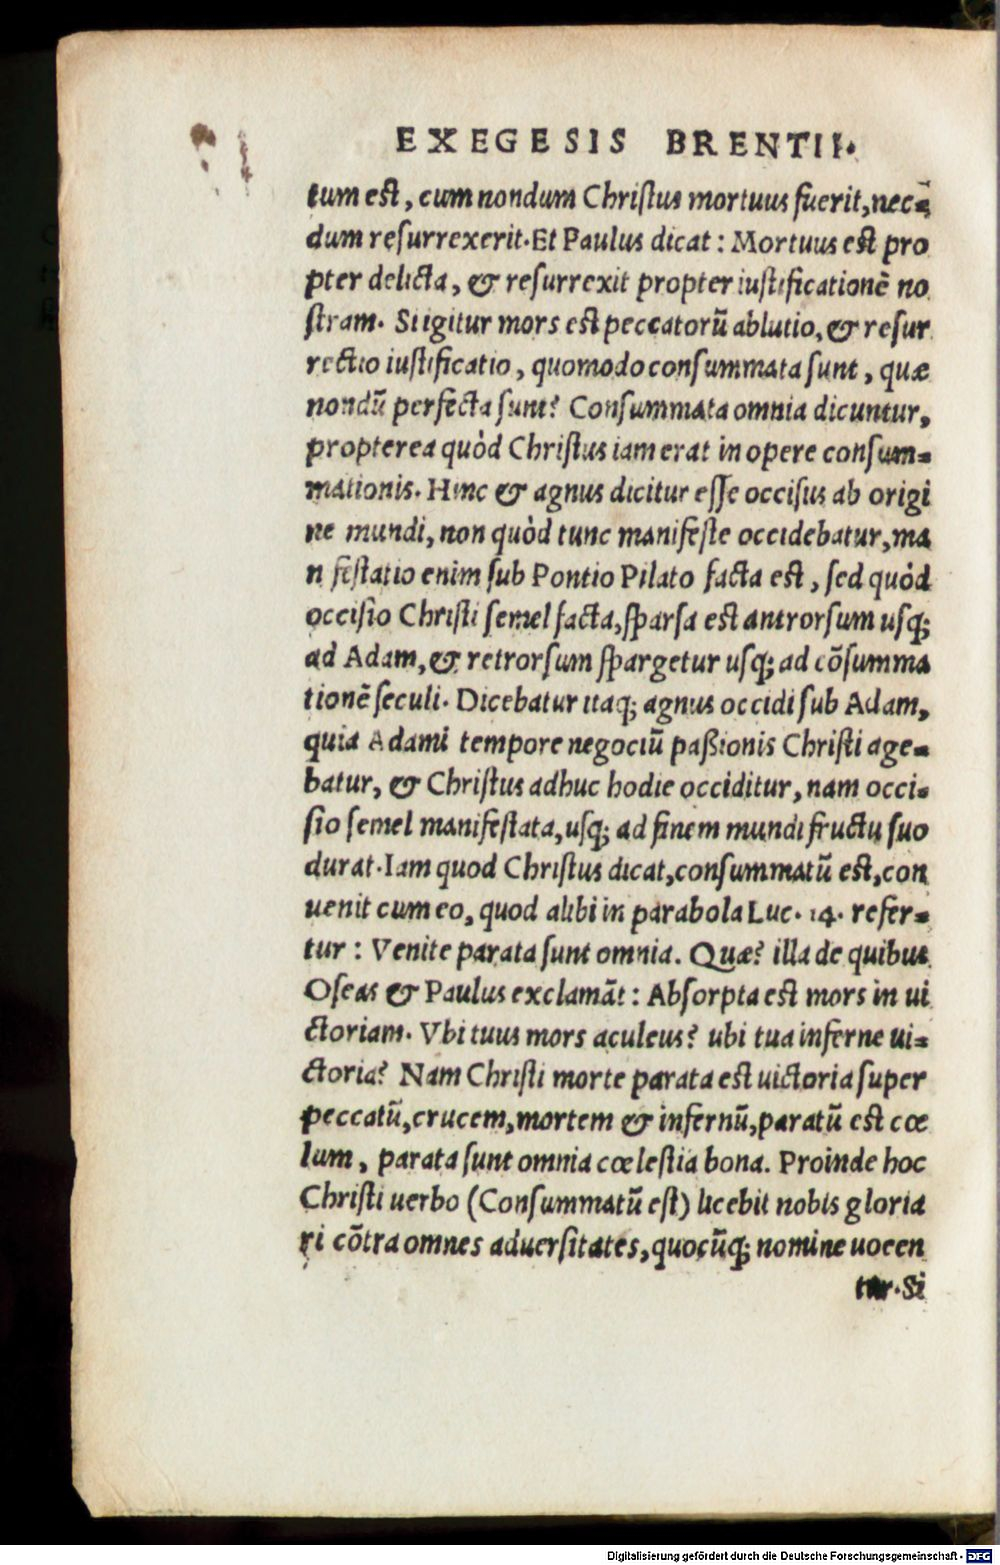 EXEGESIS BRENTII.
tum est, cum nondum Christus mortuus fuerit, nec=
dum resurrexerit. Et Paulus dicat: Mortuus est pro
pter delicta, & resurrexit propter iustificationē no
stram. Si igitur mors est peccatorū ablutio, & resur
rectio iustificatio, quomodo consummata sunt, quæ
nondū perfecta sunt? Consummata omnia dicuntur,
propterea quòd Christus iam erat in opere consum=
mationis. Hinc & agnus dicitur esse occisus ab origi
ne mundi, non quòd tunc manifeste occidebatur, ma
n festatio enim sub Pontio Pilato facta est, sed quòd
occisio Christi semel facta, sparsa est antrorsum usq;
ad Adam, & retrorsum spargetur usq; ad cōsumma
tionē seculi. Dicebatur itaq; agnus occidi sub Adam,
quia Adami tempore negociū paßionis Christi age=
batur, & Christus adhuc hodie occiditur, nam occi=
sio semel manifestata, usq; ad finem mundi fructu suo
durat. Iam quod Christus dicat, consummatū est, con
uenit cum eo, quod alibi in parabola Luc. 14. refer=
tur: Venite parata sunt omnia. Quæ? illa de quibus
Oseas & Paulus exclamāt: Absorpta est mors in ui
ctoriam. Vbi tuus mors aculeus? ubi tua inferne ui=
ctoria? Nam Christi morte parata est uictoria super
peccatū, crucem, mortem & infernū, paratū est cœ
lum, parata sunt omnia cœlestia bona. Proinde hoc
Christi uerbo (Consummatū est) licebit nobis gloria
ri cōtra omnes aduersitates, quocūq; nomine uocen
tur. Si
Digitalisierung gefördert durch die Deutsche Forschungsgemeinschaft - DFG